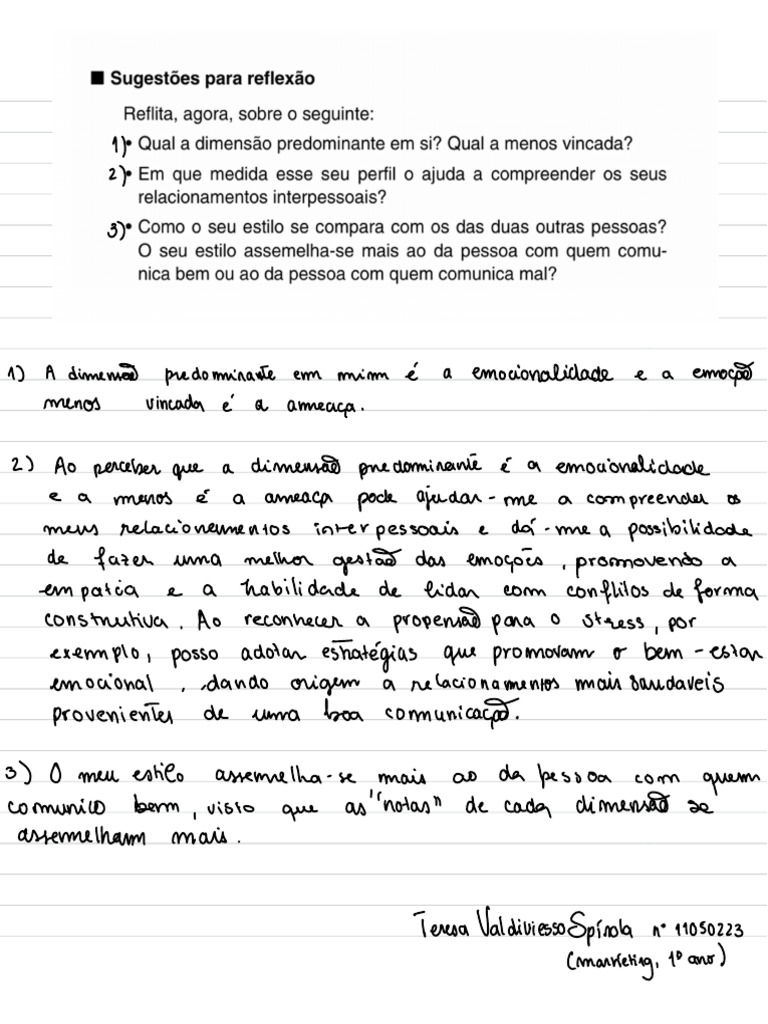 ■ Sugestões para reflexão
Reflita, agora, sobre o seguinte:
1) • Qual a dimensão predominante em si? Qual a menos vincada?
2) • Em que medida esse seu perfil o ajuda a compreender os seus
relacionamentos interpessoais?
3) • Como o seu estilo se compara com os das duas outras pessoas?
O seu estilo assemelha-se mais ao da pessoa com quem comu-
nica bem ou ao da pessoa com quem comunica mal?
1) A dimensão predominante em mim é a emocionalidade e a emoção
menos vincada é a ameaça.
2) Ao perceber que a dimensão predominante é a emocionalidade
e a menos é a ameaça pode ajudar-me a compreender os
meus relacionamentos interpessoais e dá-me a possibilidade
de fazer uma melhor gestão das emoções, promovendo a
empatia e a habilidade de lidar com conflitos de forma
construtiva. Ao reconhecer a propensão para o stress, por
exemplo, posso adotar estratégias que promovam o bem-estar
emocional, dando origem a relacionamentos mais saudaveis
provenientes de uma boa comunicação.
3) O meu estilo assemelha-se mais ao da pessoa com quem
comunico bem, visto que as "notas" de cada dimensão se
assemelham mais.
Teresa Valdiviesso Spínola nº 11050223
(marketing, 1º ano)